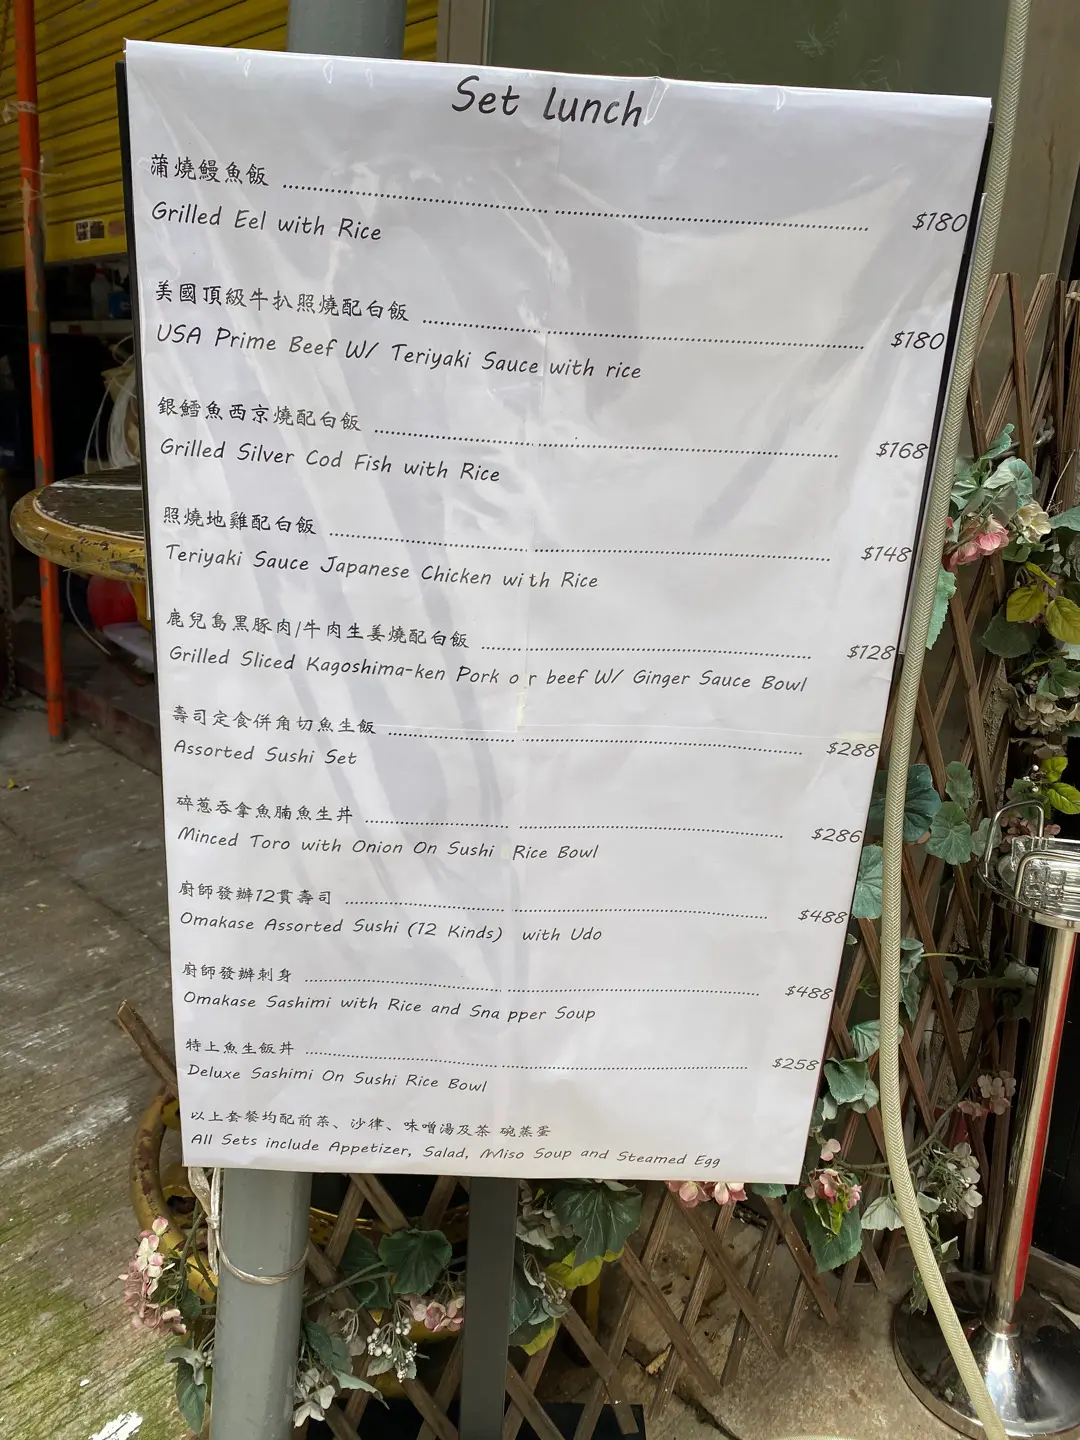 Set lunch
蒲燒鰻魚飯 $180
Grilled Eel with Rice
美國頂級牛扒照燒配白飯 $180
USA Prime Beef W/ Teriyaki Sauce with rice
銀鱈魚西京燒配白飯 $168
Grilled Silver Cod Fish with Rice
照燒地雞配白飯 $148
Teriyaki Sauce Japanese Chicken with Rice
鹿兒島黑豚肉/牛肉生姜燒配白飯 $128
Grilled Sliced Kagoshima-ken Pork or beef W/ Ginger Sauce Bowl
壽司定食併角切魚生飯 $288
Assorted Sushi Set
碎葱吞拿魚腩魚生丼 $286
Minced Toro with Onion On Sushi Rice Bowl
廚師發辦12貫壽司 $488
Omakase Assorted Sushi (12 Kinds) with Udo
廚師發辦刺身 $488
Omakase Sashimi with Rice and Snapper Soup
特上魚生飯丼 $258
Deluxe Sashimi On Sushi Rice Bowl
以上套餐均配前菜、沙律、味噌湯及茶碗蒸蛋
All Sets include Appetizer, Salad, Miso Soup and Steamed Egg